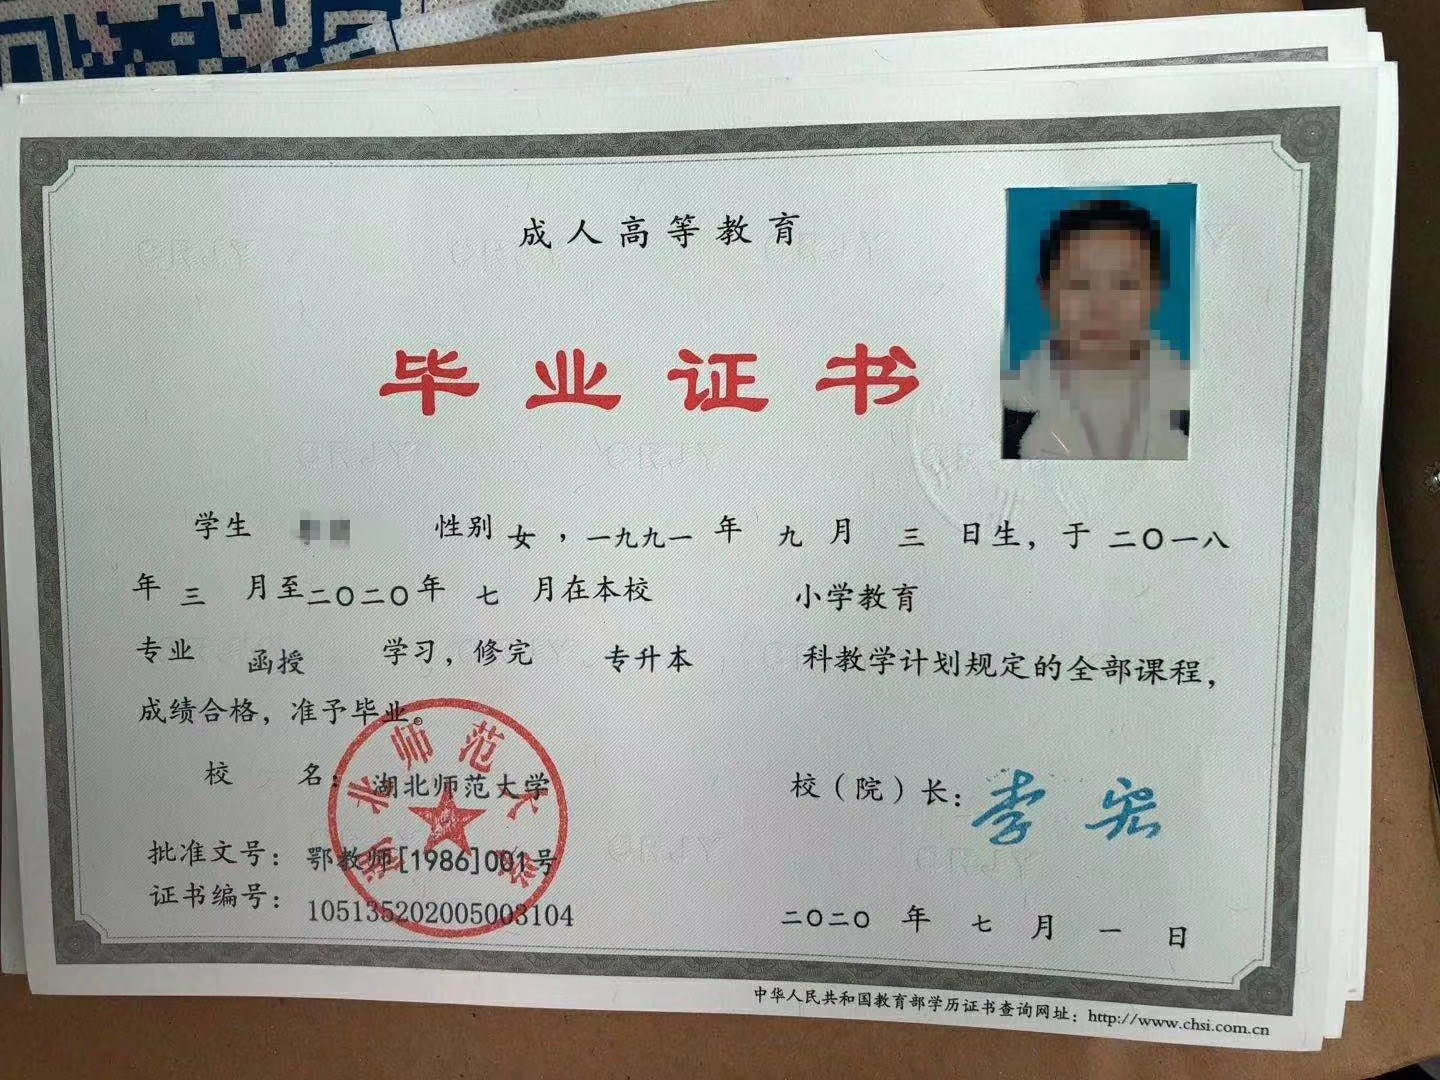 成人高等教育
毕业证书
学生 性别 女，一九九一 年 九 月 三 日生，于 二〇一八
年 三 月至二〇二〇年 七 月在本校 小学教育
专业 函授 学习，修完 专升本 科教学计划规定的全部课程，
成绩合格，准予毕业。
校 名：湖北师范大学
校（院）长：李宏
批准文号：鄂教师[1986]001号
证书编号：105135202005003104
二〇二〇 年 七 月 一 日
湖北师范大学
中华人民共和国教育部学历证书查询网址：http://www.chsi.com.cn